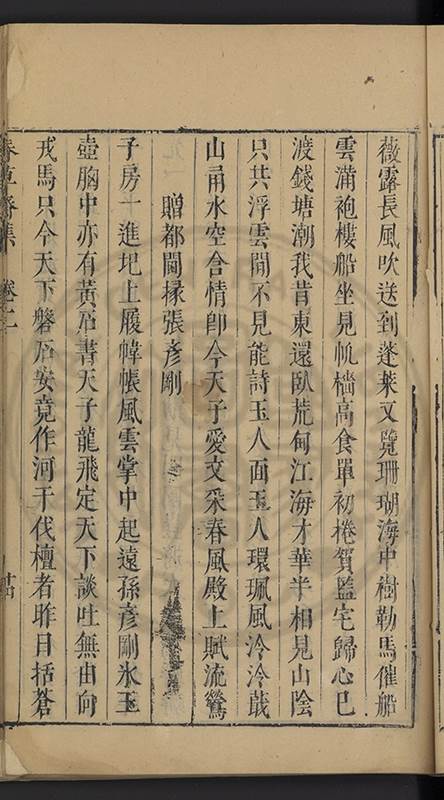 薇露長風吹送到蓬萊又覽珊瑚海中樹勒馬催船
雲滿袍樓船坐見帆檣高食單初捲賀監宅歸心已
渡錢塘潮我昔東還臥荒甸江海才華半相見山陰
只共浮雲閒不見能詩玉人面玉人環珮風泠泠戢
山鬲水空含情即今天子愛文采春風殿上賦流鶯
贈都閫掾張彥剛
子房一進圯上履幃帳風雲掌中起遠孫彥剛氷玉
壺胸中亦有黃石書天子龍飛定天下談吐無由向
戎馬只今天下磐石安竟作河干伐檀者昨日括蒼